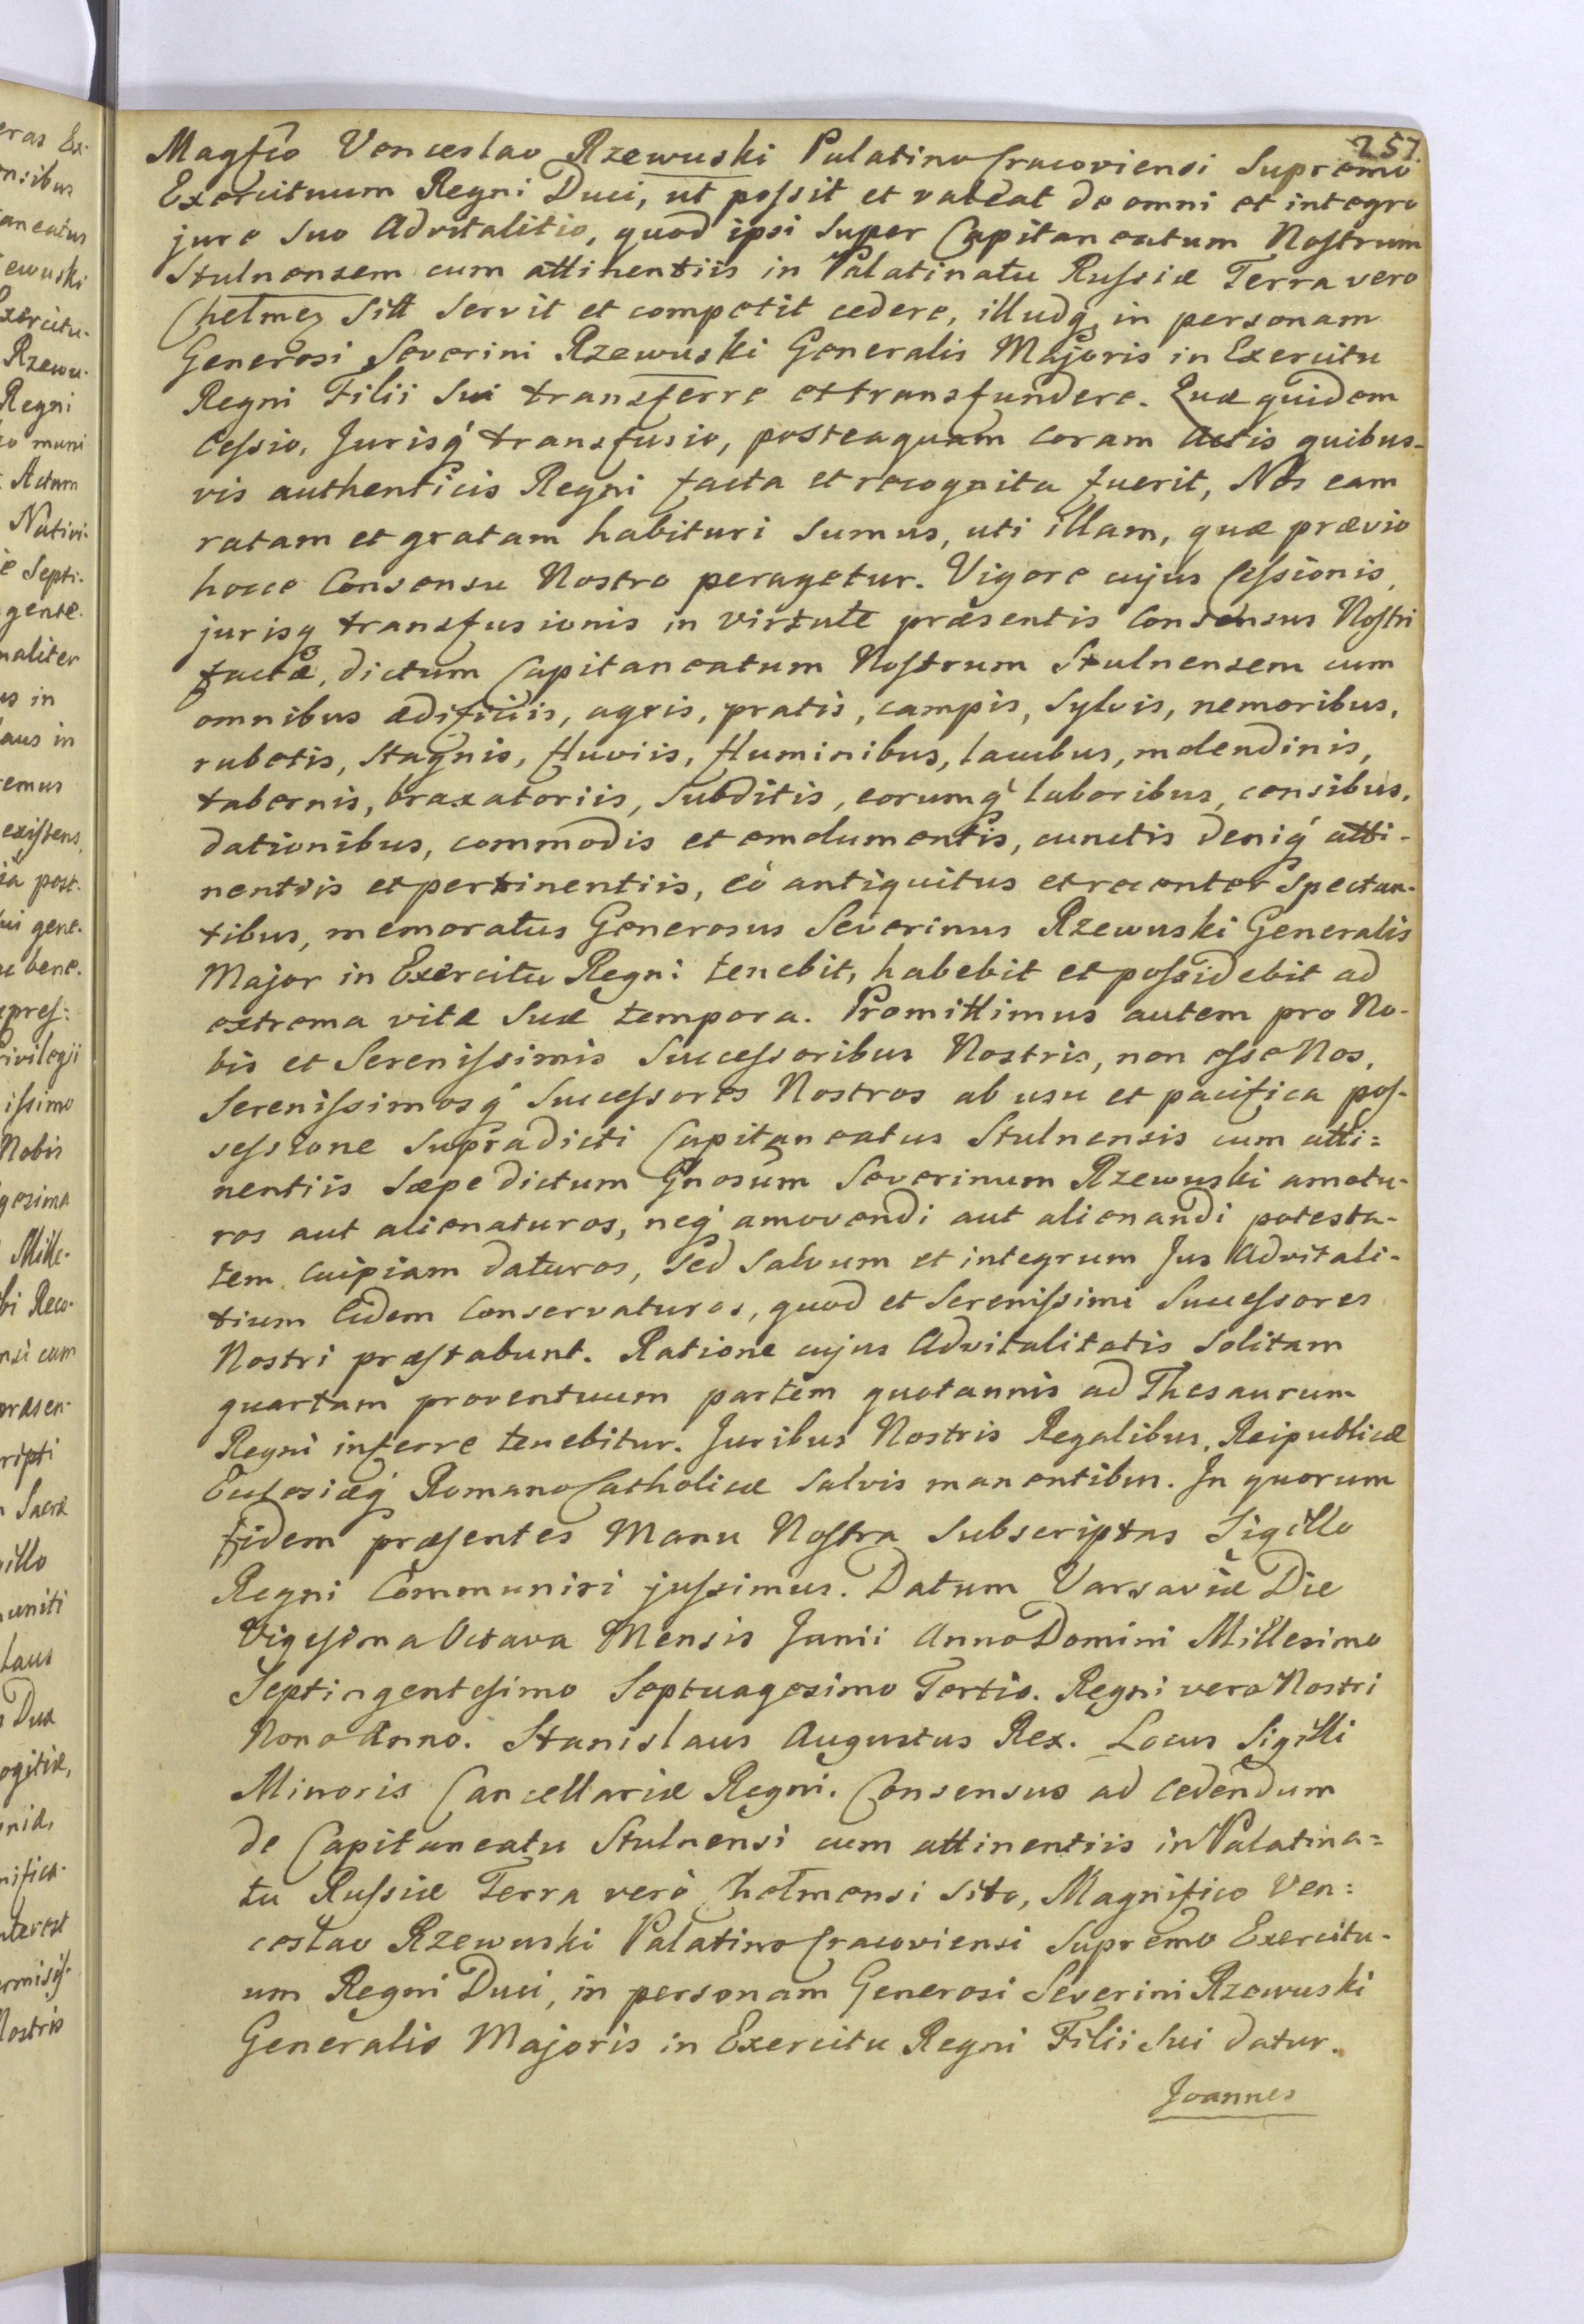 257.
Magfico Venceslao Rzewuski Palatino Cracoviensi Supremo
Exercituum Regni Duci, ut possit et valeat de omni et integro
jure suo Advitalitio, quod ipsi super Capitaneatum Nostrum
Stulnensem cum attinentiis in Palatinatu Russiæ Terra vero
Chelmeń sitt servit et competit cedere, illudq in personam
Generosi Severini Rzewuski Generalis Majoris in Exercitu
Regni Filii Sui transferre et transfundere. Quæ quidem
Cessio, Jurisq́ transfusio, posteaquam coram Actis quibus-
vis authenticis Regni facta et recognita fuerit, Nos eam
ratam et gratam habituri sumus, uti illam, quæ prævio
hocce Consensu Nostro peragetur. Vigore cujus Cessionis,
jurisq transfusionis in virtute præsentis Consensus Nostri
factæ, dictum Capitaneatum Nostrum Stulnensem cum
omnibus ædificiis, agris, pratis, campis, sylvis, nemoribus,
rubetis, stagnis, fluviis, fluminibus, lacubus, molendinis,
tabernis, braxatoriis, subditis, eorumq́ laboribus, censibus,
dationibus, commodis et emolumentis, cunctis deniq́ atti-
nentiis et pertinentiis, eò antiquitus et recenter spectan-
tibus, memoratus Generosus Severinus Rzewuski Generalis
Major in Exercitu Regni tenebit, habebit et possidebit ad
extrema vitæ suæ tempora. Promittimus autem pro No-
bis et Serenissimis Successoribus Nostris, non esse Nos,
Serenissimosq́ Successores Nostros ab usu et pacifica pos-
sessione supradicti Capitaneatus Stulnensis cum atti=
nentiis sæpe dictum Gnosum Severinum Rzewuski amotu-
ros aut alienaturos, neq́ amovendi aut alienandi potesta-
tem cuipiam daturos, sed salvum et integrum Jus Advitali-
tium Eidem conservaturos, quod et Serenissimi Successores
Nostri præstabunt. Ratione cujus Advitalitatis solitam
quartam proventuum partem quotannis ad Thesaurum
Regni inferre tenebitur. Juribus Nostris Regalibus, Reipublicæ
Ecclesiæq́ Romano Catholicæ salvis manentibus. In quorum
fidem præsentes Manu Nostra subscriptas Sigillo
Regni Communiri jussimus. Datum Varsaviæ Die
Vigesima Octava Mensis Junii Anno Domini Millesimo
Septingentesimo Septuagesimo Tertio. Regni vero Nostri
Nono Anno. Stanislaus Augustus Rex. Locus Sigilli
Minoris Cancellariæ Regni. Consensus ad cedendum
de Capitaneatu Stulnensi cum attinentiis in Palatina=
tu Russiæ Terra verò Chelmensi sito, Magnifico Ven=
ceslao Rzewuski Palatino Cracoviensi Supremo Exercitu-
um Regni Duci, in personam Generosi Severini Rzewuski
Generalis Majoris in Exercitu Regni Filii Sui datur.
Joannes